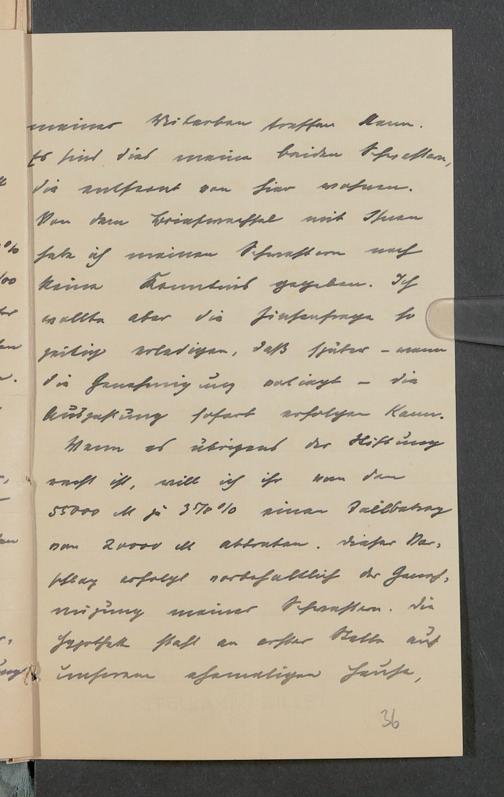 meiner Miterben treffen kann.
Es sind dies meine beiden Schwestern,
die entfernt von hier wohnen.
Von dem Briefwechsel mit Ihnen
habe ich meinen Schwestern noch
keine Kenntnis gegeben. Ich
wollte aber die Zinsenfrage so
zeitig erledigen, daß später – wenn
die Genehmigung vorliegt – die
Auszahlung sofort erfolgen kann.
Wenn es übrigens der Stiftung
recht ist, will ich ihr von den
55000 M zu 3¾ % einen Teilbetrag
von 20000 M abtreten. Dieser Vor-
schlag erfolgt vorbehaltlich der Geneh-
migung meiner Schwestern. Die
Hypothek steht an erster Stelle auf
unserem ehemaligen Hause,
36